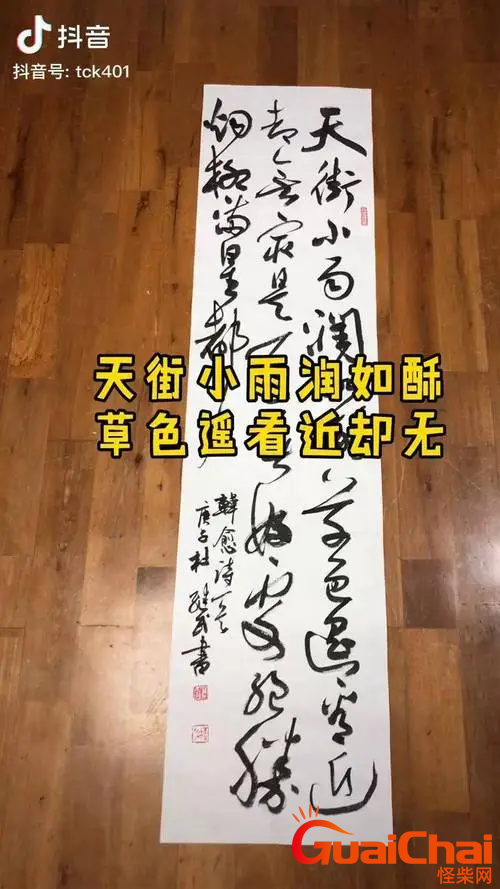 抖音
抖音号: tck401
天街小雨润如酥
草色遥看近却无
天街小雨潤草色遥看近
却無最是一好處絶勝
烟柳滿皇都
韓愈诗一首
庚子杜書
GuaiChai
怪柴网